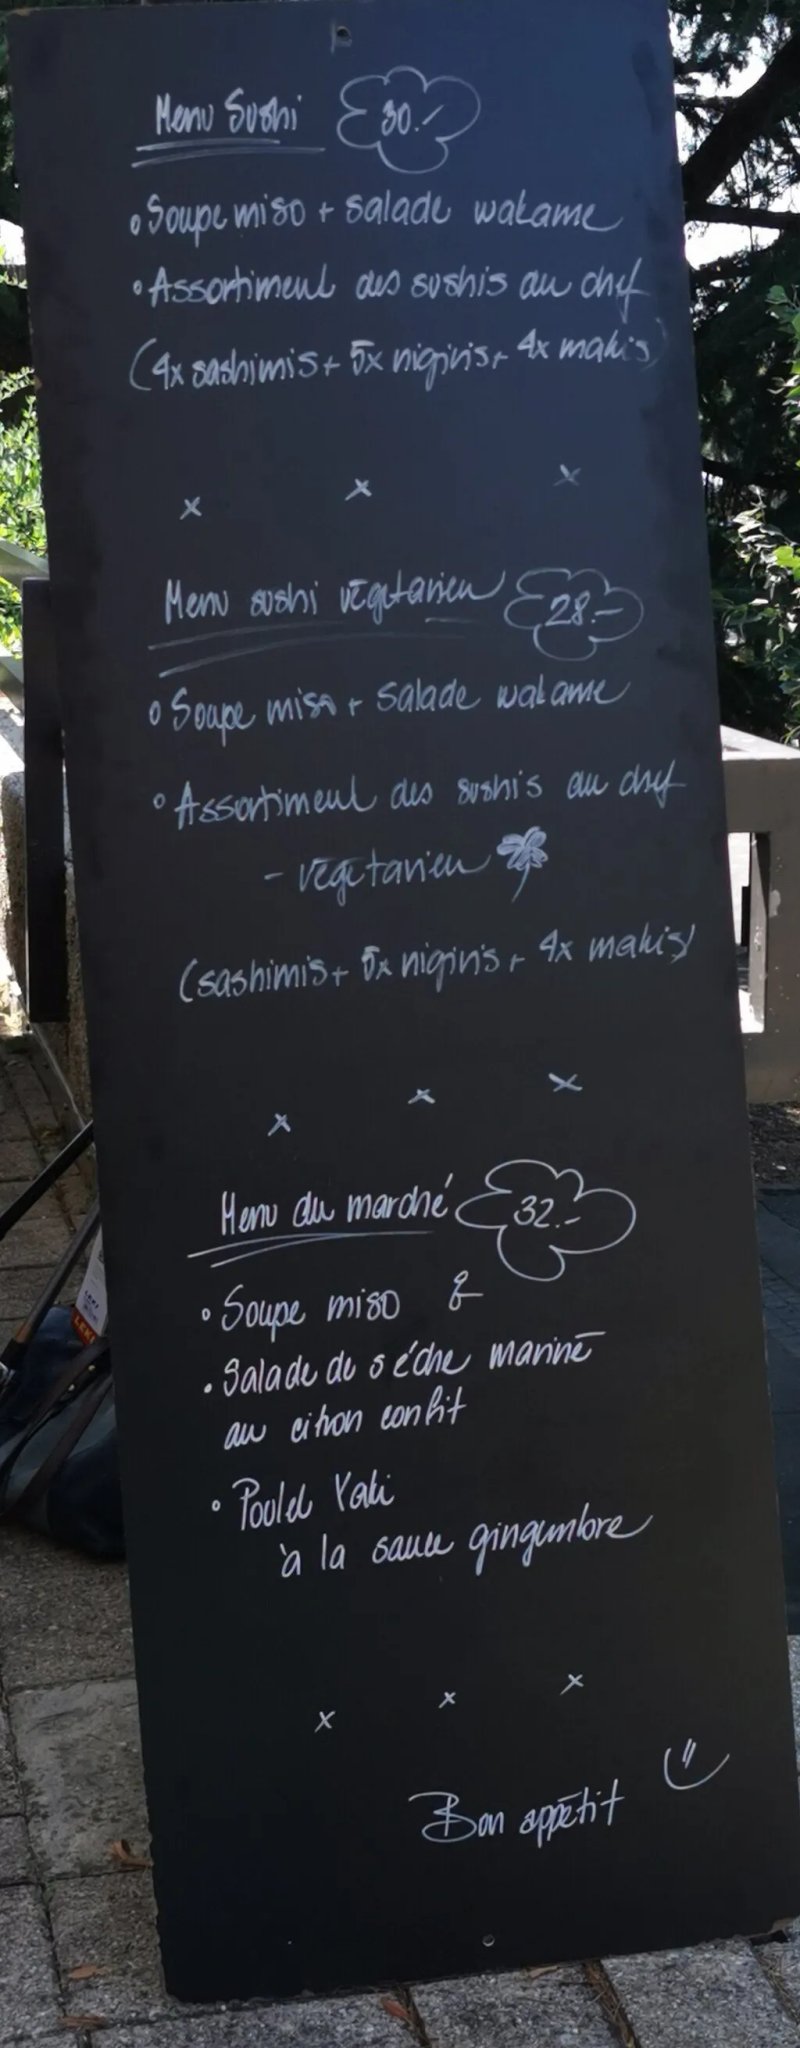 Menu Sushi 30.-
Soupe miso + salade wakame
Assortiment des sushis du chef
(4x sashimis + 5x nigiris + 4x makis)
x x x
Menu sushi végétarien 28.-
Soupe miso + salade wakame
Assortiment des sushis du chef
- végétarien
(sashimis + 5x nigiris + 4x makis)
x x x
Menu du marché 32.-
Soupe miso &
Salade de sèche mariné
au citron confit
Poulet Yaki
à la sauce gingembre
x x x
Bon appétit
LEKI